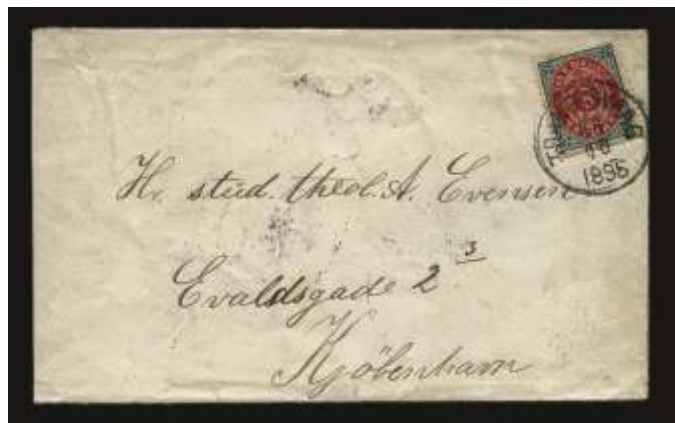 Hr. stud. theol. A. Evensen
Evaldsgade 2 3
Kjöbenhavn
1896